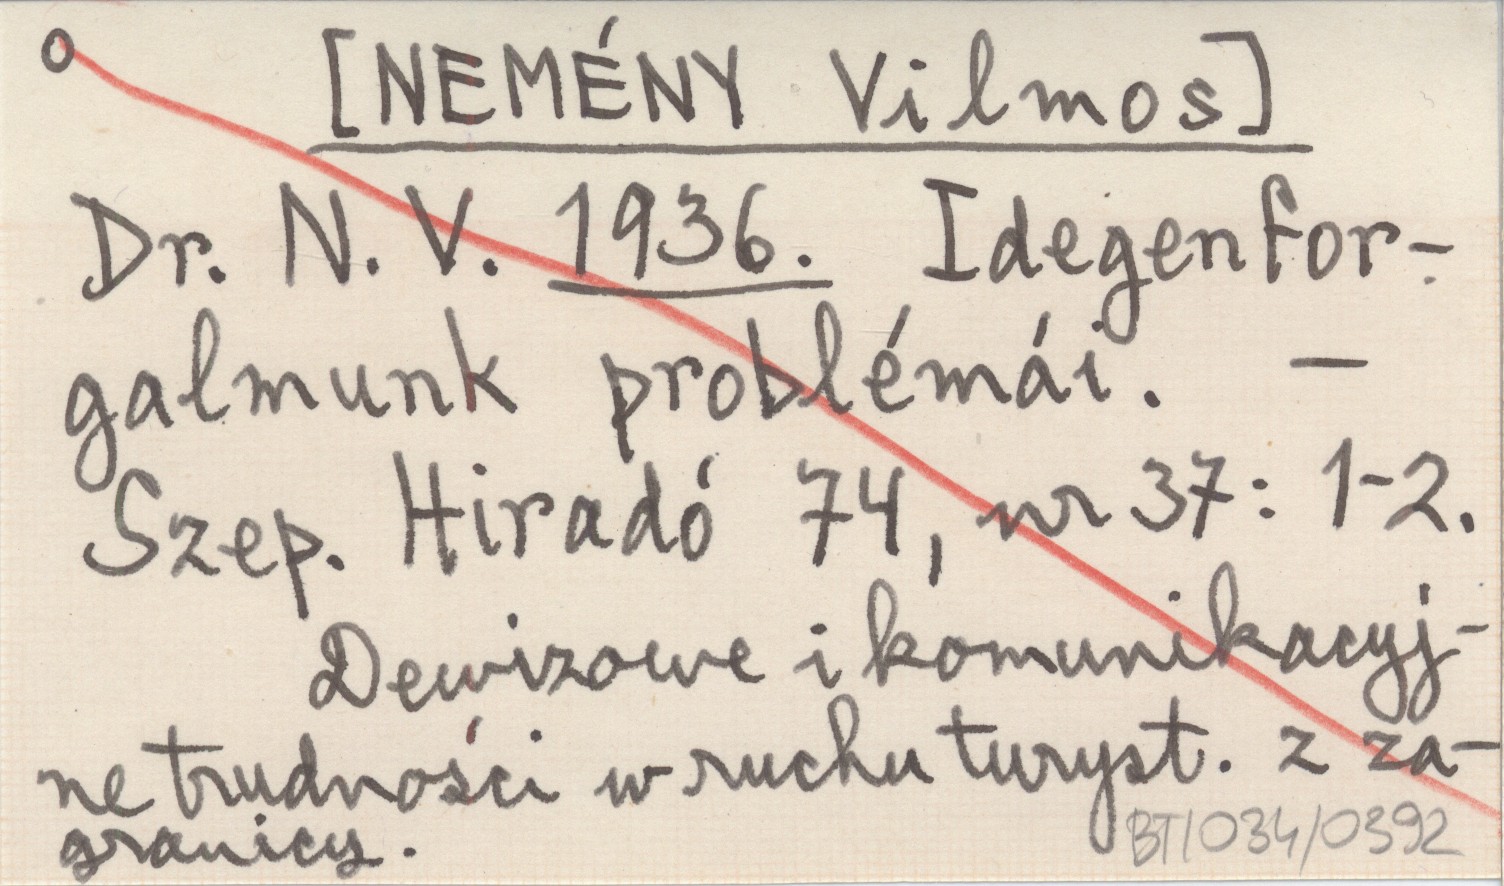 [NEMÉNY Vilmos]
Dr. N. V. 1936. Idegenfor-
galmunk problémái. —
Szep. Hiradó 74, nr 37: 1-2.
Dewizowe i komunikacyj-
ne trudności w ruchu turyst. z za-
granicy.
BT/034/0392